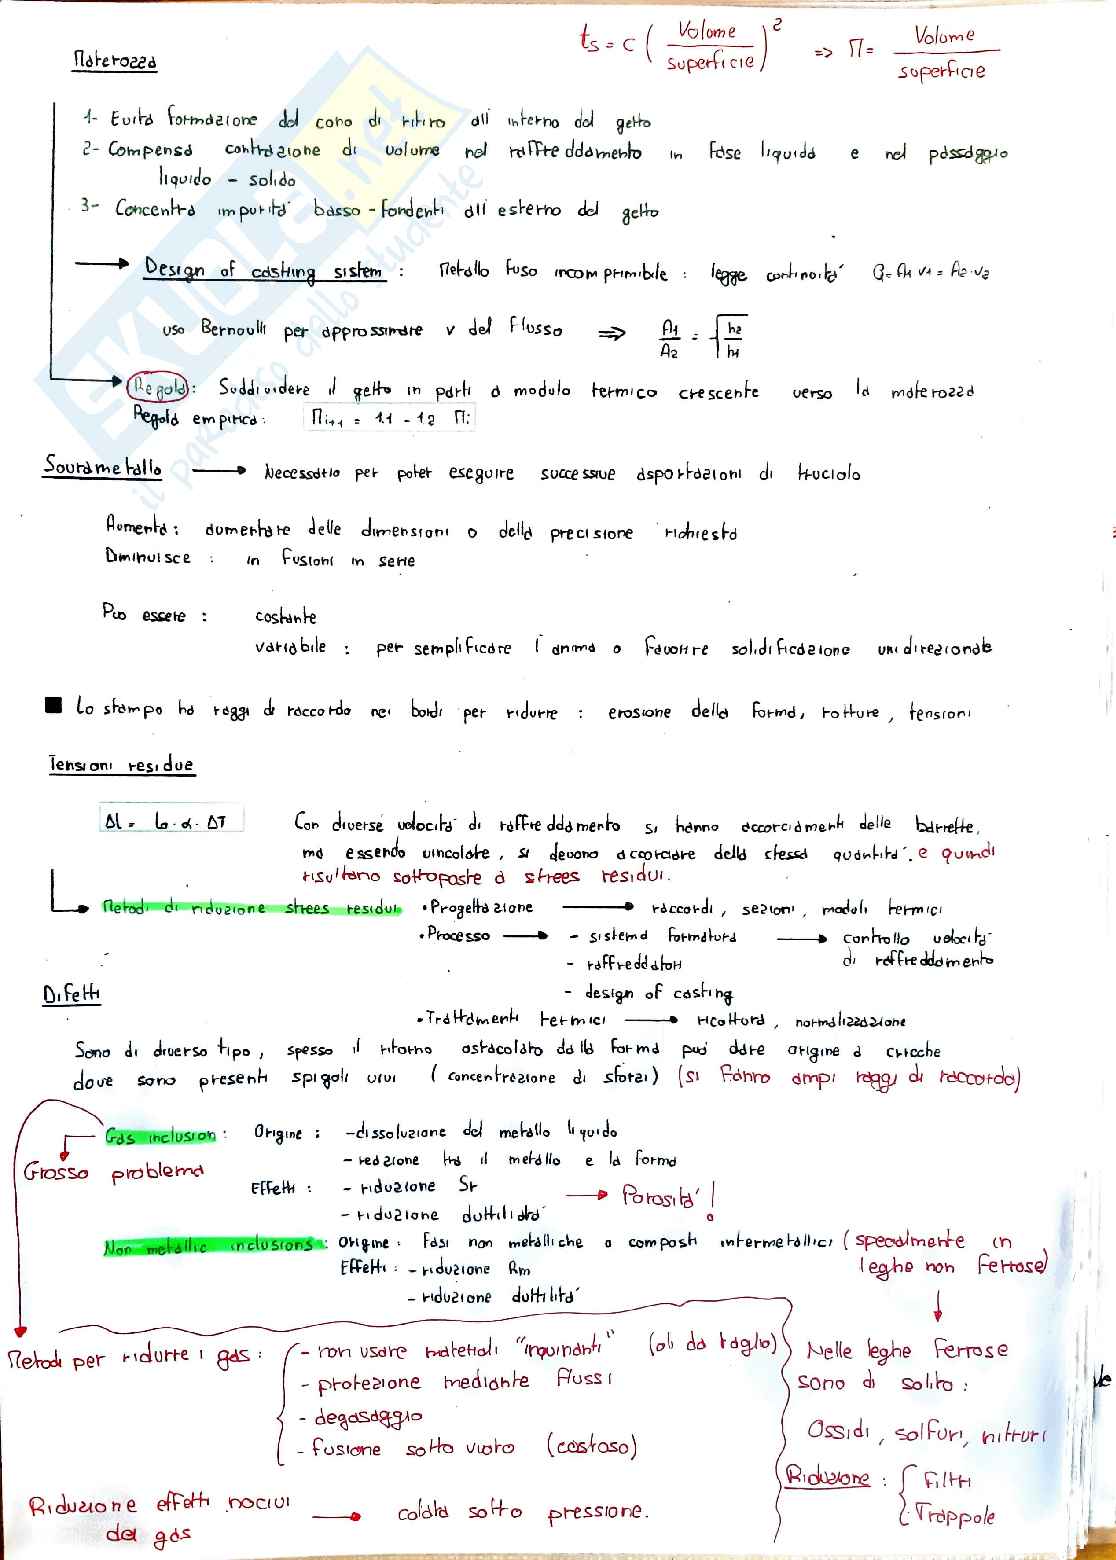 ts = c ( Volume / superficie )² => M = Volume / superficie
Materozza
1- Evita formazione del cono di ritiro all'interno del getto
2- Compensa contrazione di volume nel raffreddamento in fase liquida e nel passaggio
liquido - solido
3- Concentra impurità basso-fondenti all'esterno del getto
Design of casting sistem : Metallo fuso incomprimibile : legge continuità Q = A1 v1 = A2 · v2
uso Bernoulli per approssimare v del flusso => A1 / A2 = √ h2 / h1
Regola : Suddividere il getto in parti a modulo termico crescente verso la materozza
Regola empirica : Mi+1 = 1.1 - 1.2 Mi
Sovrametallo → Necessario per poter eseguire successive asportazioni di truciolo
Aumenta : aumentare delle dimensioni o della precisione richiesta
Diminuisce : in fusioni in serie
Può essere : costante
variabile : per semplificare l'anima o favorire solidificazione unidirezionale
■ Lo stampo ha raggi di raccordo nei bordi per ridurre : erosione della forma, rotture, tensioni
Tensioni residue
Δl = l0 · α · ΔT Con diverse velocità di raffreddamento si hanno accorciamenti delle barrette,
ma essendo vincolate, si devono accorciare della stessa quantità. e quindi
risultano sottoposte a strees residui.
Metodi di riduzione strees residui • Progettazione → raccordi, sezioni, moduli termici
• Processo → - sistema formatura → controllo velocità
- raffreddatori di raffreddamento
- design of casting
Difetti
• Trattamenti termici → ricottura, normalizzazione
Sono di diverso tipo, spesso il ritorno ostacolato dalla forma può dare origine a cricche
dove sono presenti spigoli vivi (concentrazione di sforzi) (si fanno ampi raggi di raccordo)
Gas inclusion : Origine : - dissoluzione del metallo liquido
- reazione tra il metallo e la forma
Grosso problema
Effetti : - riduzione Sr → Porosità !
- riduzione duttilità
Non metallic inclusions : Origine : Fasi non metalliche o composti intermetallici (specialmente in
leghe non ferrose)
Effetti : - riduzione Rm
- riduzione duttilità
Metodi per ridurre i gas : - non usare materiali "inquinanti" (oli da taglio)
- protezione mediante flussi
- degasaggio
- fusione sotto vuoto (costoso)
Nelle leghe ferrose
sono di solito :
Ossidi, solfuri, nitruri
Riduzione : Filtri
Trappole
Riduzione effetti nocivi
del gas → colata sotto pressione.
SKUOLA.net
il paradiso dello studente